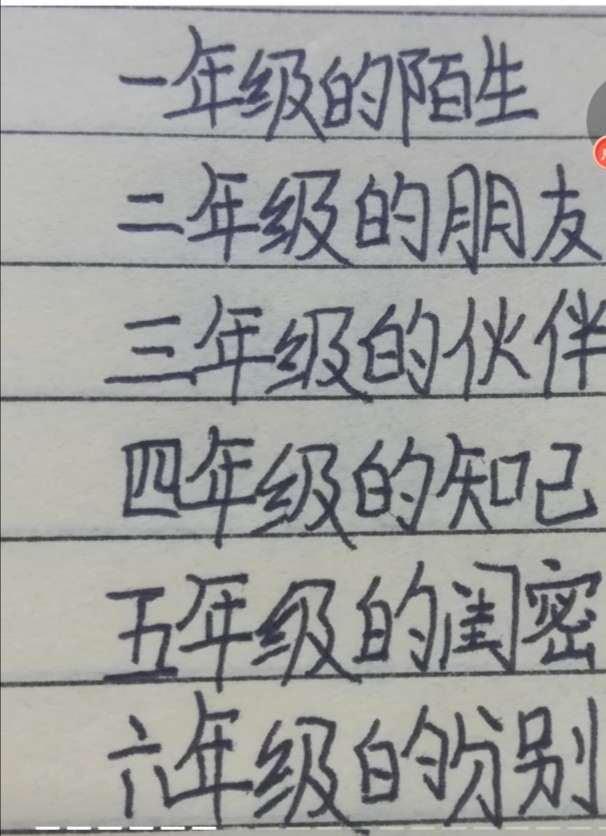 一年级的陌生
二年级的朋友
三年级的伙伴
四年级的知己
五年级的闺密
六年级的分别